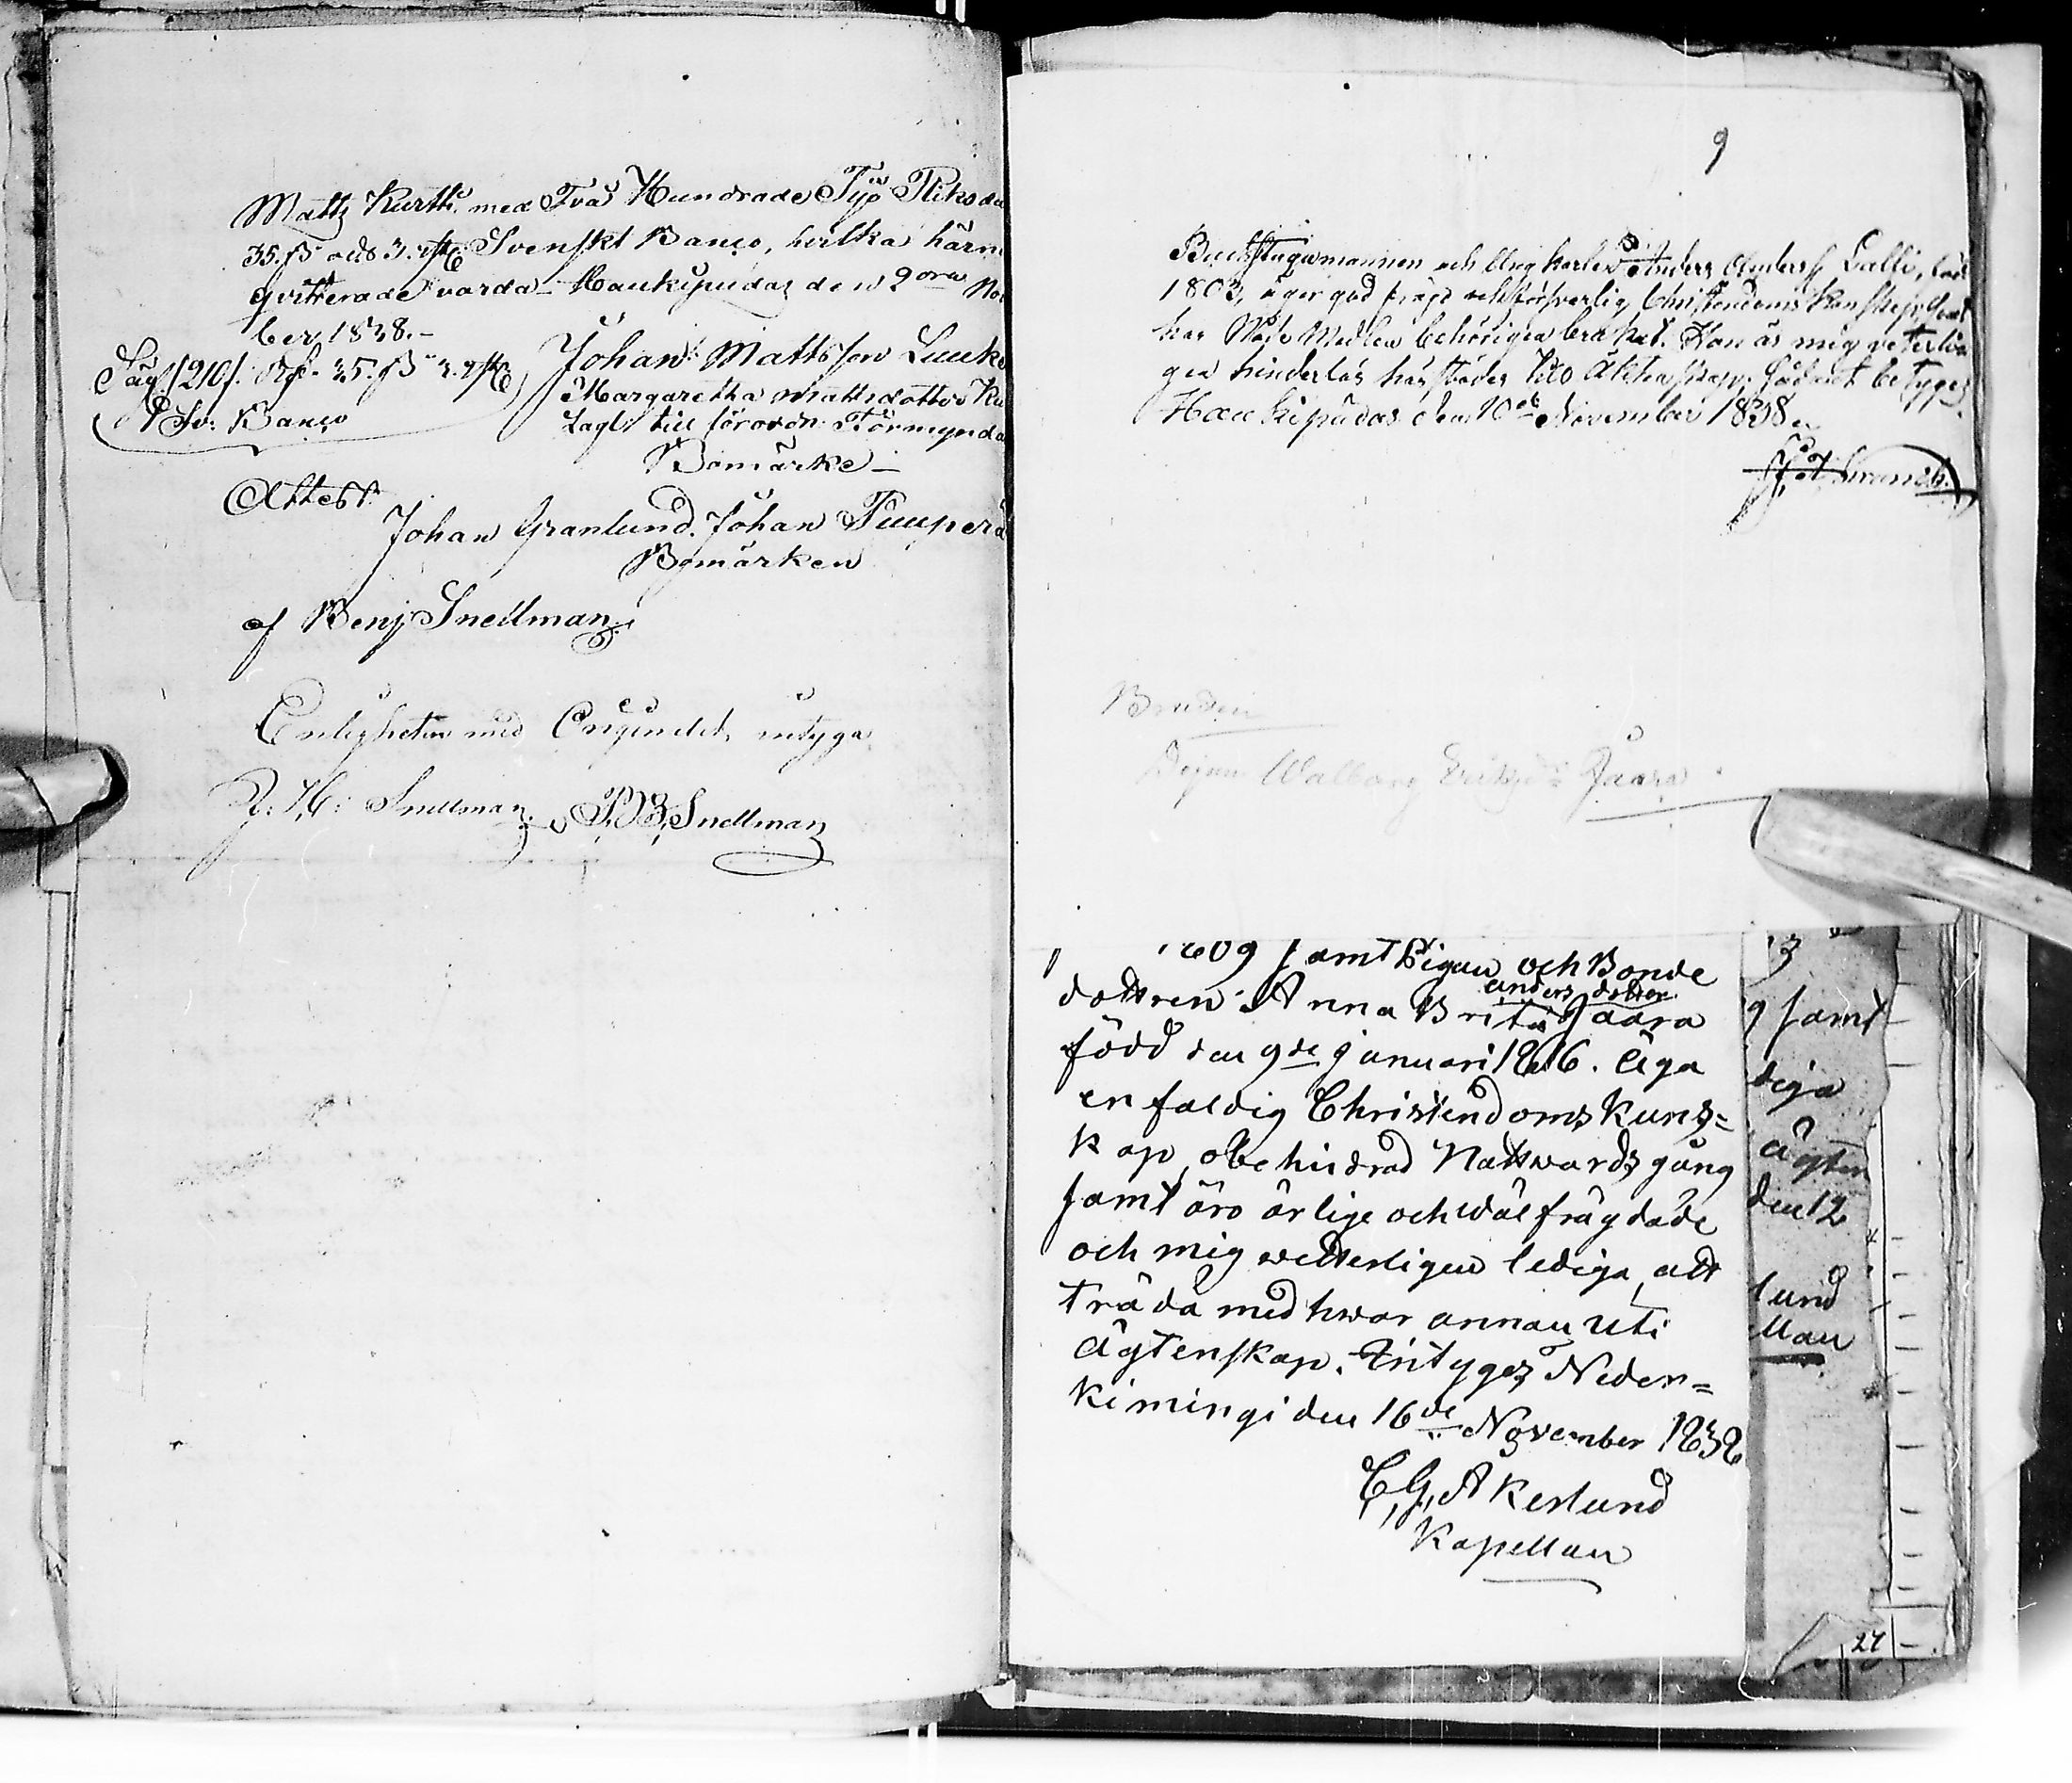 Matts Kurtti med Två Hundrade Tijo Riksda
35. ß och 3. rst Svenskt Banco, hvilka härm
qvitterade varda. Haukipudas den 2 dra No
ber 1838.-
Säg. /210/. Rd. 35. ß 3. rst
Sv: Banco
Johan Mattsson Luuk
Margaretha Mattsdotter Ku
Lagl: till förordn: Förmynda
Bomärke
Attest.
Johan Granlund. Johan Tuuperä
Bomärken
af Benj Snellman
Enligheten med Originalet, intyga
J: H: Snellman. P B Snellman
9
Backstugumannen och Ungkarlen Anders Anderss Lalli, föd
1803, äger god frägd och försvarlig Christendoms kunskap, samt
har Nåde Medlen behörigen brukat. Han är mig veterli
gen hinderlös här städes till Äktenskap; sådant betygas
Haukipudas den 10de November 1838
Bruden
Pigan Walborg Eriksd: Jaara
1809 samt Pigan och Bonde
dottren Anna Brita Jaara
anders dotter
född den 9de januari 1816. Äga
enfaldig Christendoms Kuns=
kap, obehindrad Nattwardsgång
samt äro ärlige och wäl frägdade
och mig wetterligen lediga att
träda med hwar annan uti
Ägtenskap. Intygas Neder=
kimingi den 16de November 1838
C, G, Akerlund
Kapellan
3
g samt
diga
Ägten
den 12
lund
llan
27